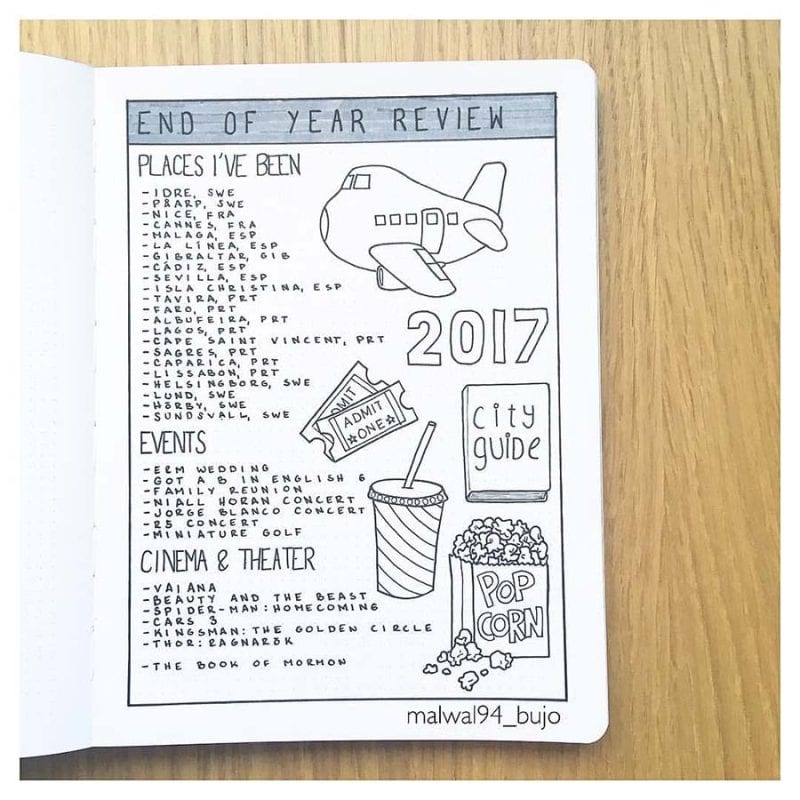 END OF YEAR REVIEW
PLACES I'VE BEEN
- IDRE, SWE
- PRARP, SWE
- NICE, FRA
- CANNES, FRA
- MALAGA, ESP
- LA LÍNEA, ESP
- GIBRALTAR, GIB
- CÁDIZ, ESP
- SEVILLA, ESP
- ISLA CHRISTINA, ESP
- TAVIRA, PRT
- FARO, PRT
- ALBUFEIRA, PRT
- LAGOS, PRT
- CAPE SAINT VINCENT, PRT
- SAGRES, PRT
- CAPARICA, PRT
- LISSABON, PRT
- HELSINGBORG, SWE
- LUND, SWE
- HÖRBY, SWE
- SUNDSVALL, SWE
2017
ADMIT
ADMIT
ONE
city
guide
EVENTS
- E&M WEDDING
- GOT A B IN ENGLISH 6
- FAMILY REUNION
- NIALL HORAN CONCERT
- JORGE BLANCO CONCERT
- R5 CONCERT
- MINIATURE GOLF
CINEMA & THEATER
- VAIANA
- BEAUTY AND THE BEAST
- SPIDER-MAN: HOMECOMING
- CARS 3
- KINGSMAN: THE GOLDEN CIRCLE
- THOR: RAGNARÖK
- THE BOOK OF MORMON
POP
CORN
malwal94_bujo